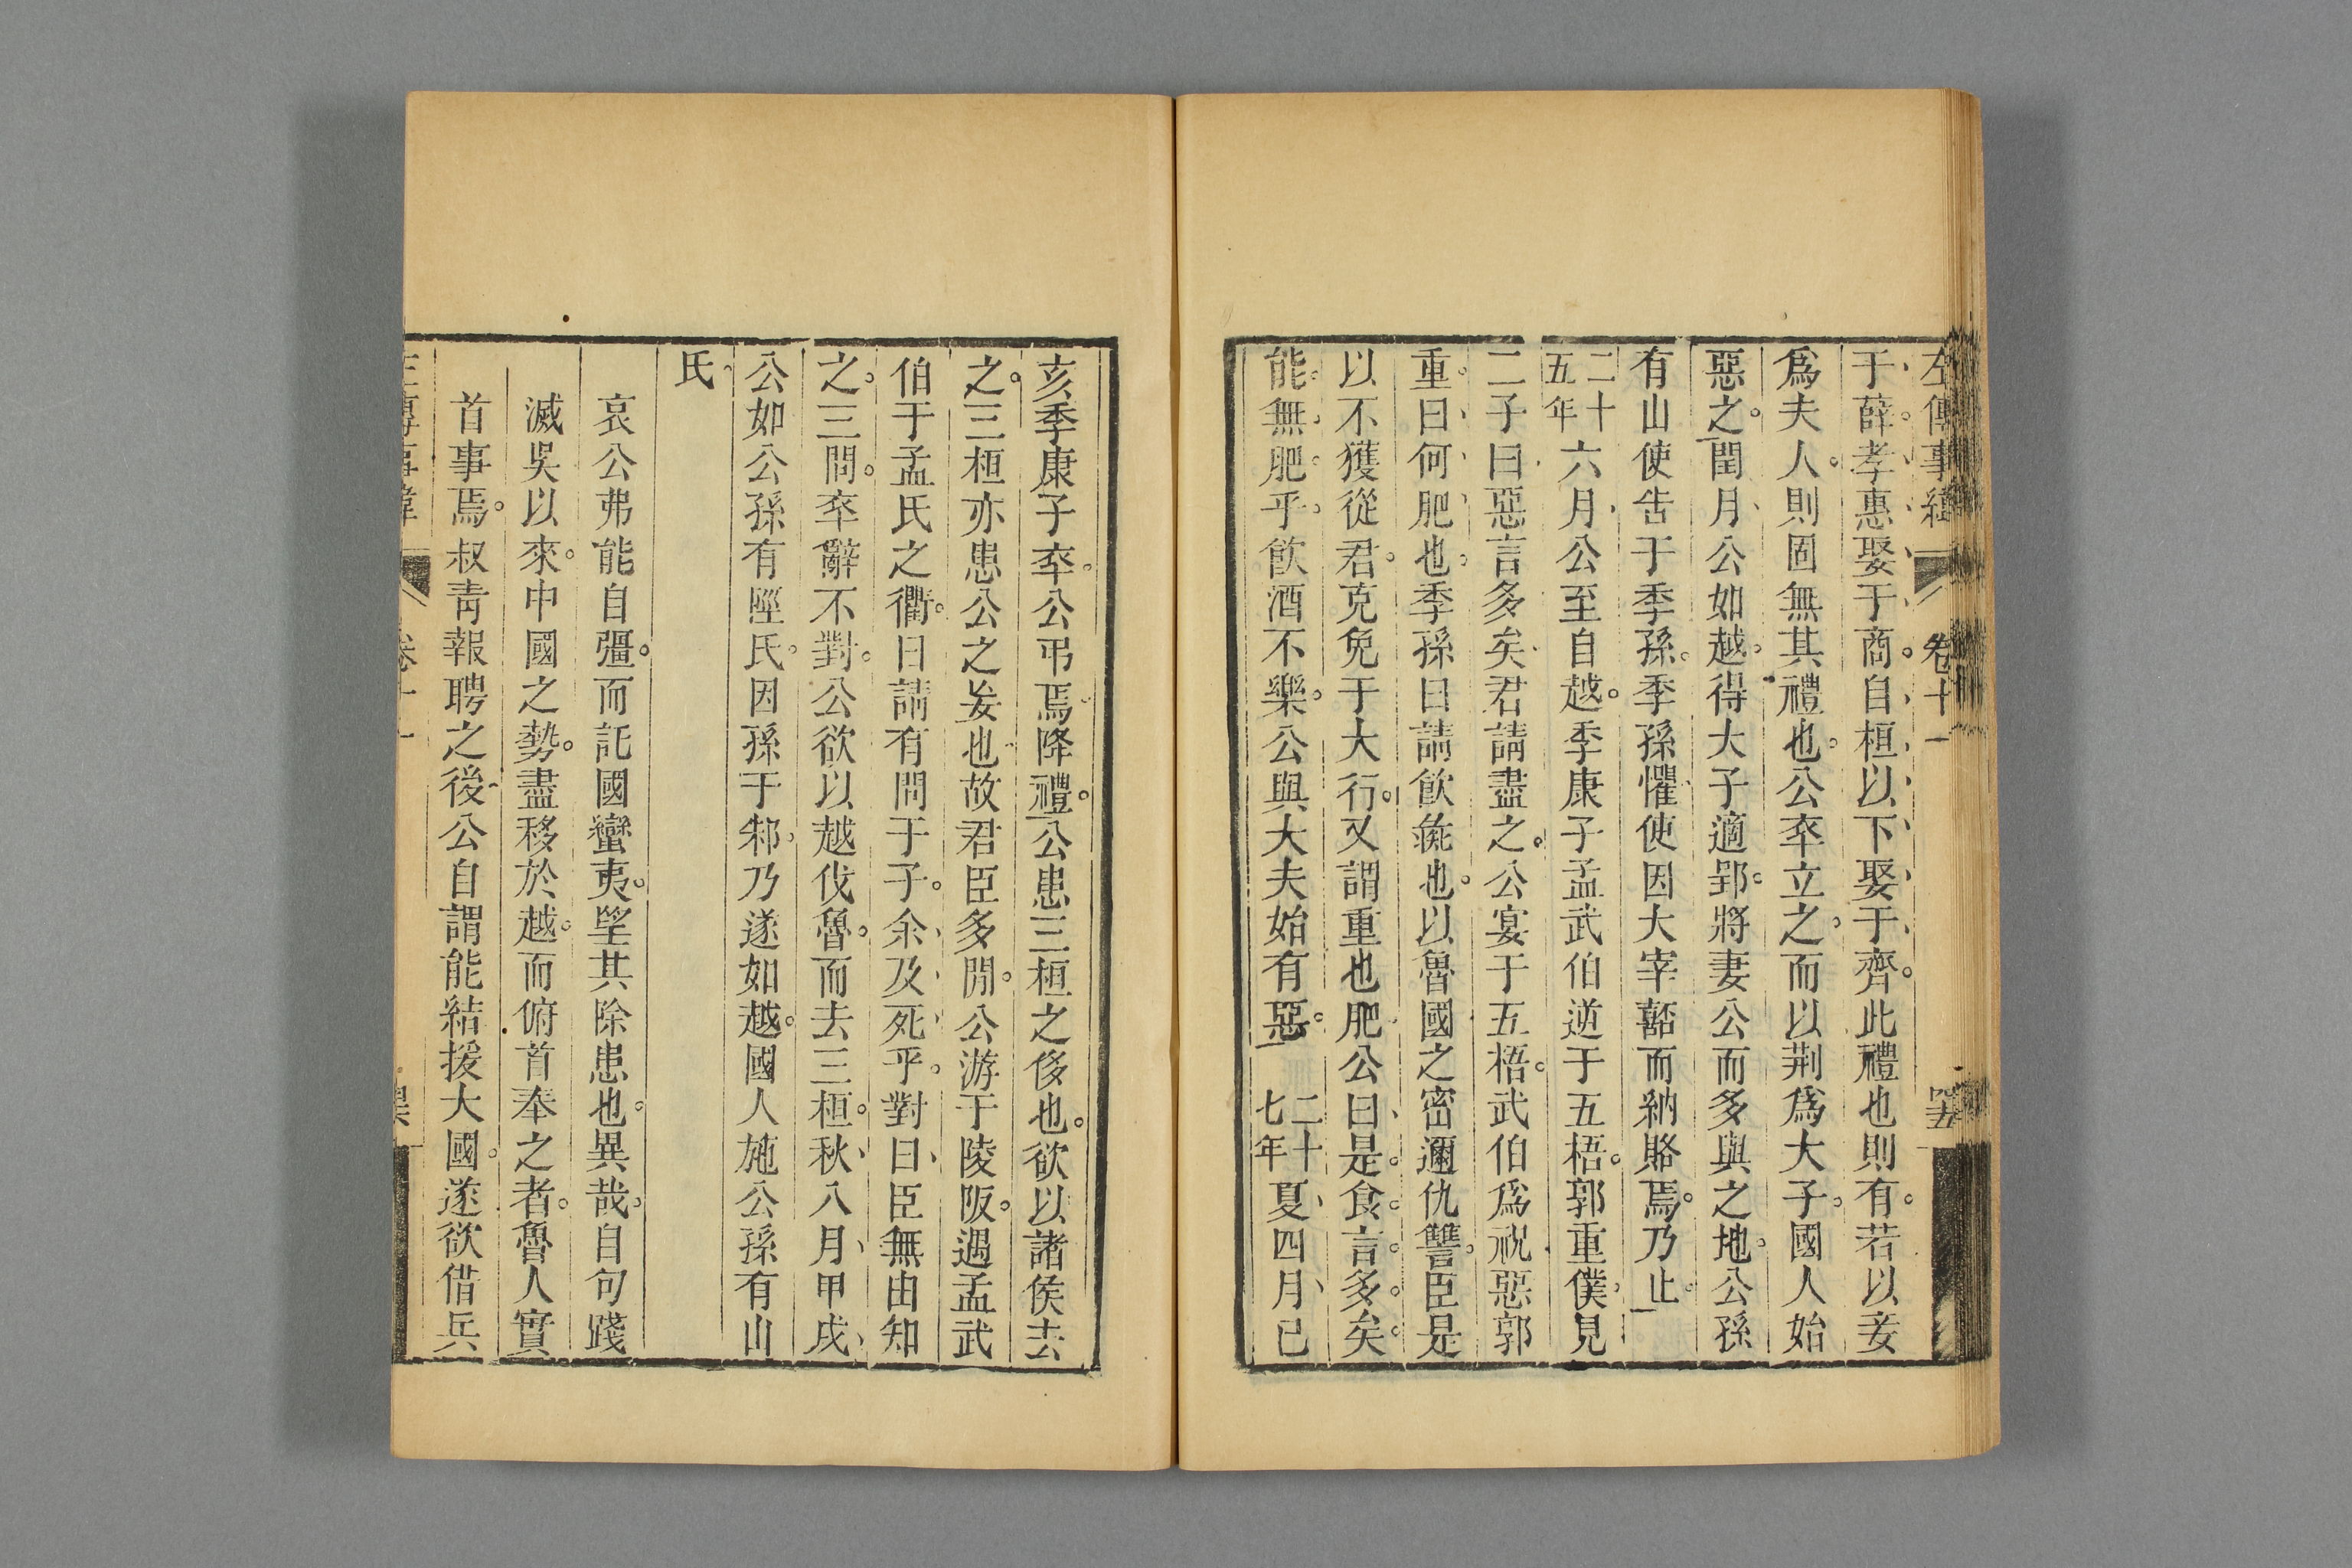 左傳事緯 卷十一 四五
于薛孝惠娶于商自桓以下娶于齊此禮也則有若以妾
爲夫人則固無其禮也公卒立之而以荆爲大子國人始
惡之閏月公如越得大子適郢將妻公而多與之地公孫
有山使告于季孫季孫懼使因大宰嚭而納賂焉乃止
二十五年六月公至自越季康子孟武伯逆于五梧郭重僕見
二子曰惡言多矣君請盡之公宴于五梧武伯爲祝惡郭
重曰何肥也季孫曰請飮彘也以魯國之密邇仇讐臣是
以不獲從君克免于大行又謂重也肥公曰是食言多矣
能無肥乎飮酒不樂公與大夫始有惡二十七年夏四月已
亥季康子卒公弔焉降禮公患三桓之侈也欲以諸侯去
之三桓亦患公之妄也故君臣多閒公游于陵阪遇孟武
伯于孟氏之衢曰請有問于子余及死乎對曰臣無由知
之三問卒辭不對公欲以越伐魯而去三桓秋八月甲戌
公如公孫有陘氏因孫于邾乃遂如越國人施公孫有山
氏
哀公弗能自彊而託國蠻夷望其除患也異哉自句踐
滅吳以來中國之勢盡移於越而俯首奉之者魯人實
首事焉叔靑報聘之後公自謂能結援大國遂欲借兵